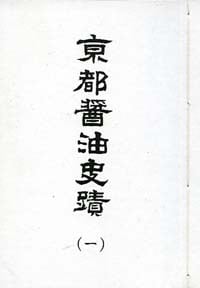 京都醤油史蹟
(一)